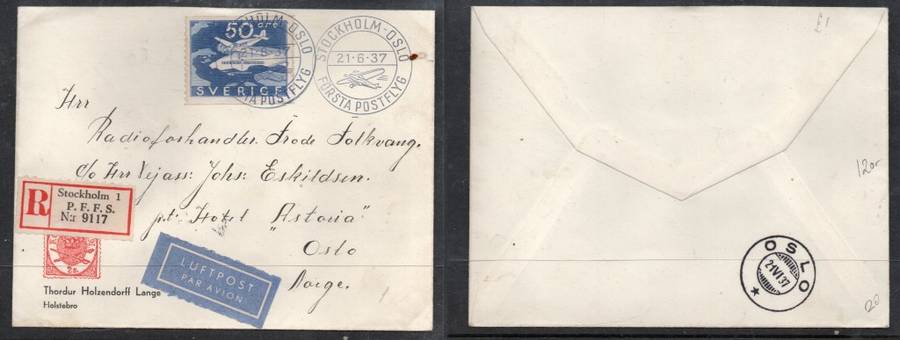 50 öre
SVERIGE
STOCKHOLM-OSLO
21-6-37
FÖRSTA POSTFLYG
STOCKHOLM-OSLO
21-6-37
FÖRSTA POSTFLYG
Hrr
Radioforhandler Frode Folkvang.
c/o Hrr Vejass: Johs: Eskildsen.
pt: Hotel "Astoria"
Oslo
Norge.
R
Stockholm 1
P. F. F. S.
N:r 9117
LUFTPOST
PAR AVION
Thordur Holzendorff Lange
Holstebro
£1
12or
OSLO
21VI37
20